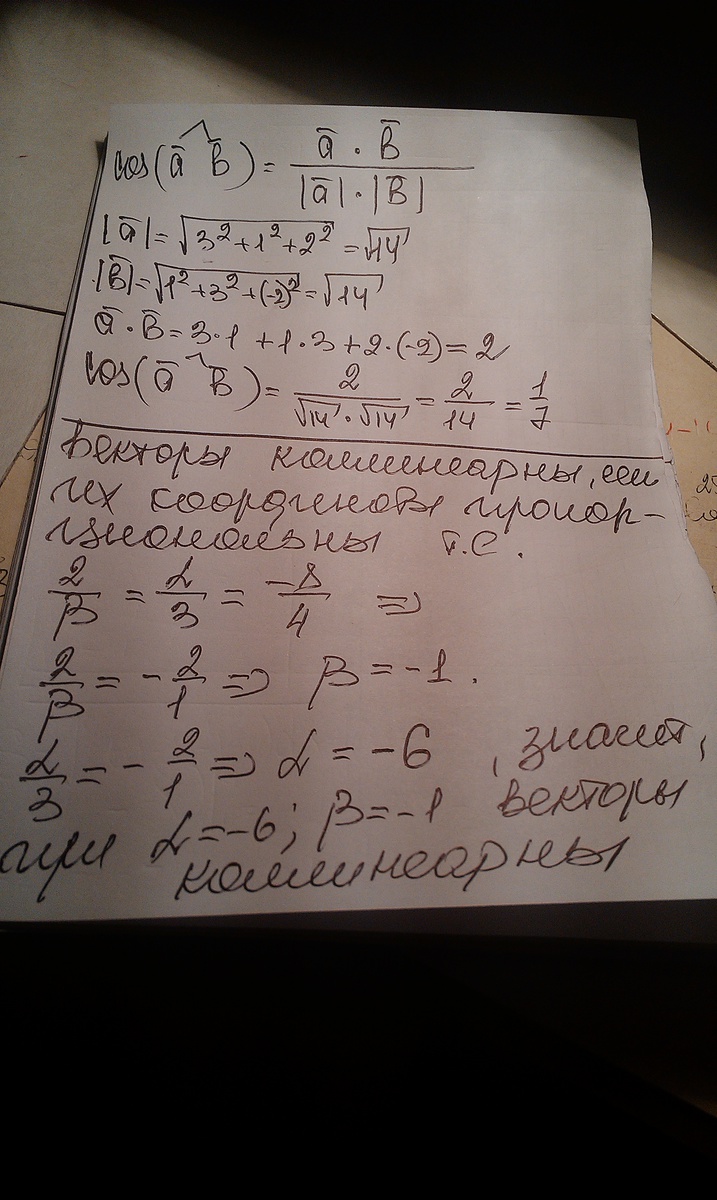 cos(ā ^ b̄) = ā · b̄ / |ā| · |b̄|
|ā| = √(3² + 1² + 2²) = √14
|b̄| = √(1² + 3² + (-2)²) = √14
ā · b̄ = 3·1 + 1·3 + 2·(-2) = 2
cos(ā ^ b̄) = 2 / (√14 · √14) = 2/14 = 1/7
Векторы коллинеарны, если
их координаты пропор-
циональны т.е.
2/β = α/3 = -8/4 ⇒
2/β = - 2/1 ⇒ β = -1.
α/3 = - 2/1 ⇒ α = -6 , значит,
при α = -6; β = -1 векторы
коллинеарны